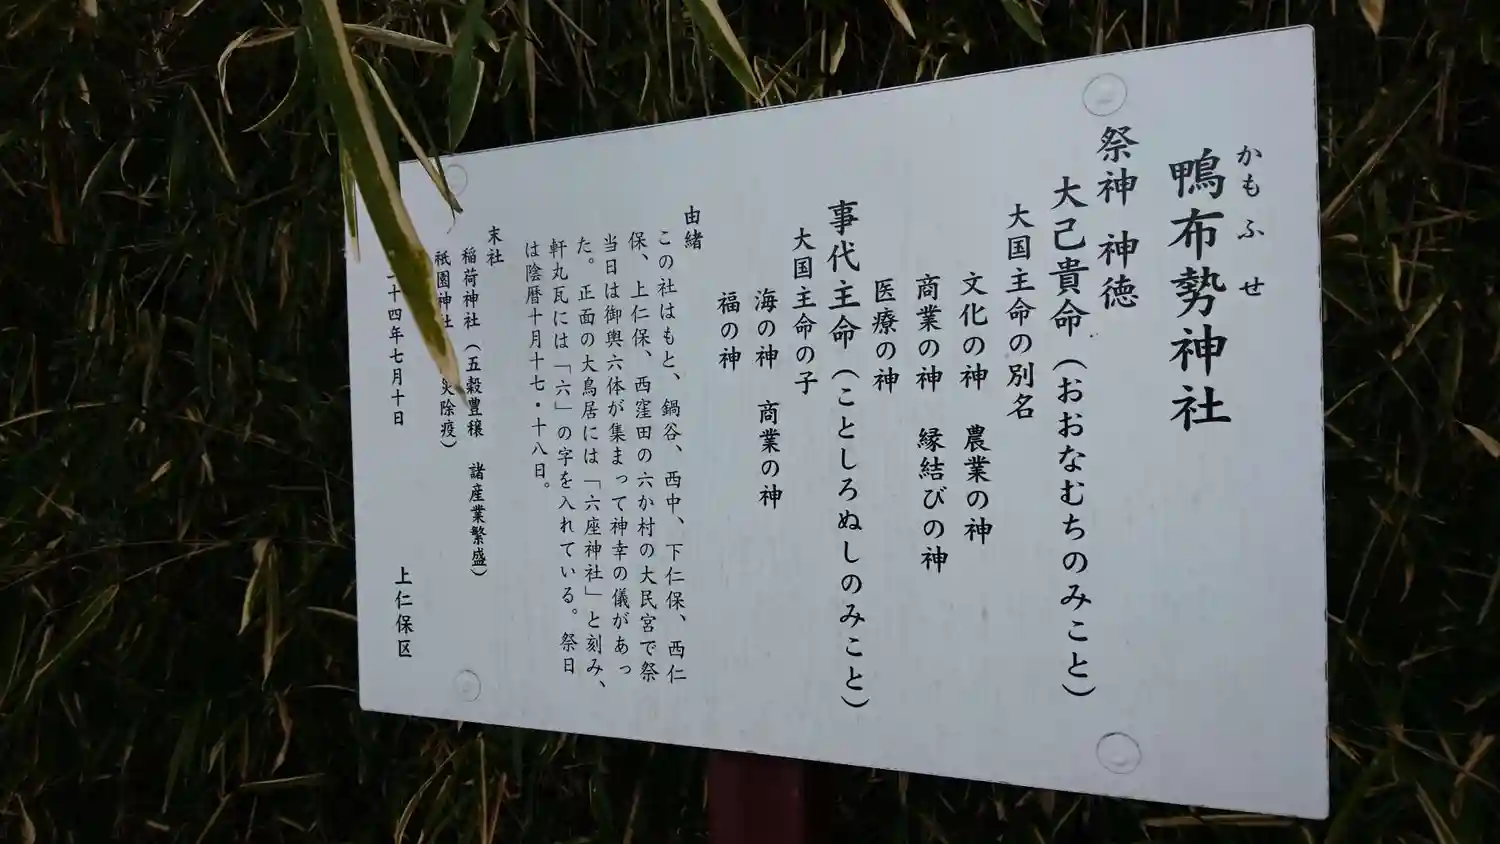 かもふせ
鴨布勢神社
祭神 神徳
大己貴命（おおなむちのみこと）
大国主命の別名
文化の神 農業の神
商業の神 縁結びの神
医療の神
事代主命（ことしろぬしのみこと）
大国主命の子
海の神 商業の神
福の神
由緒
この社はもと、鍋谷、西中、下仁保、西仁
保、上仁保、西窪田の六か村の大民宮で祭
当日は御輿六体が集まって神幸の儀があっ
た。正面の大鳥居には「六座神社」と刻み、
軒丸瓦には「六」の字を入れている。祭日
は陰暦十月十七・十八日。
末社
稲荷神社（五穀豊穣 諸産業繁盛）
祇園神社 災除疫）
十四年七月十日 上仁保区